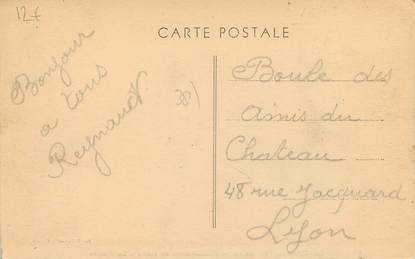 12f
CARTE POSTALE
Bonjour
a tous
Reynaud
38)
Boule des
Amis du
Chateau
48 rue Jacquard
Lyon